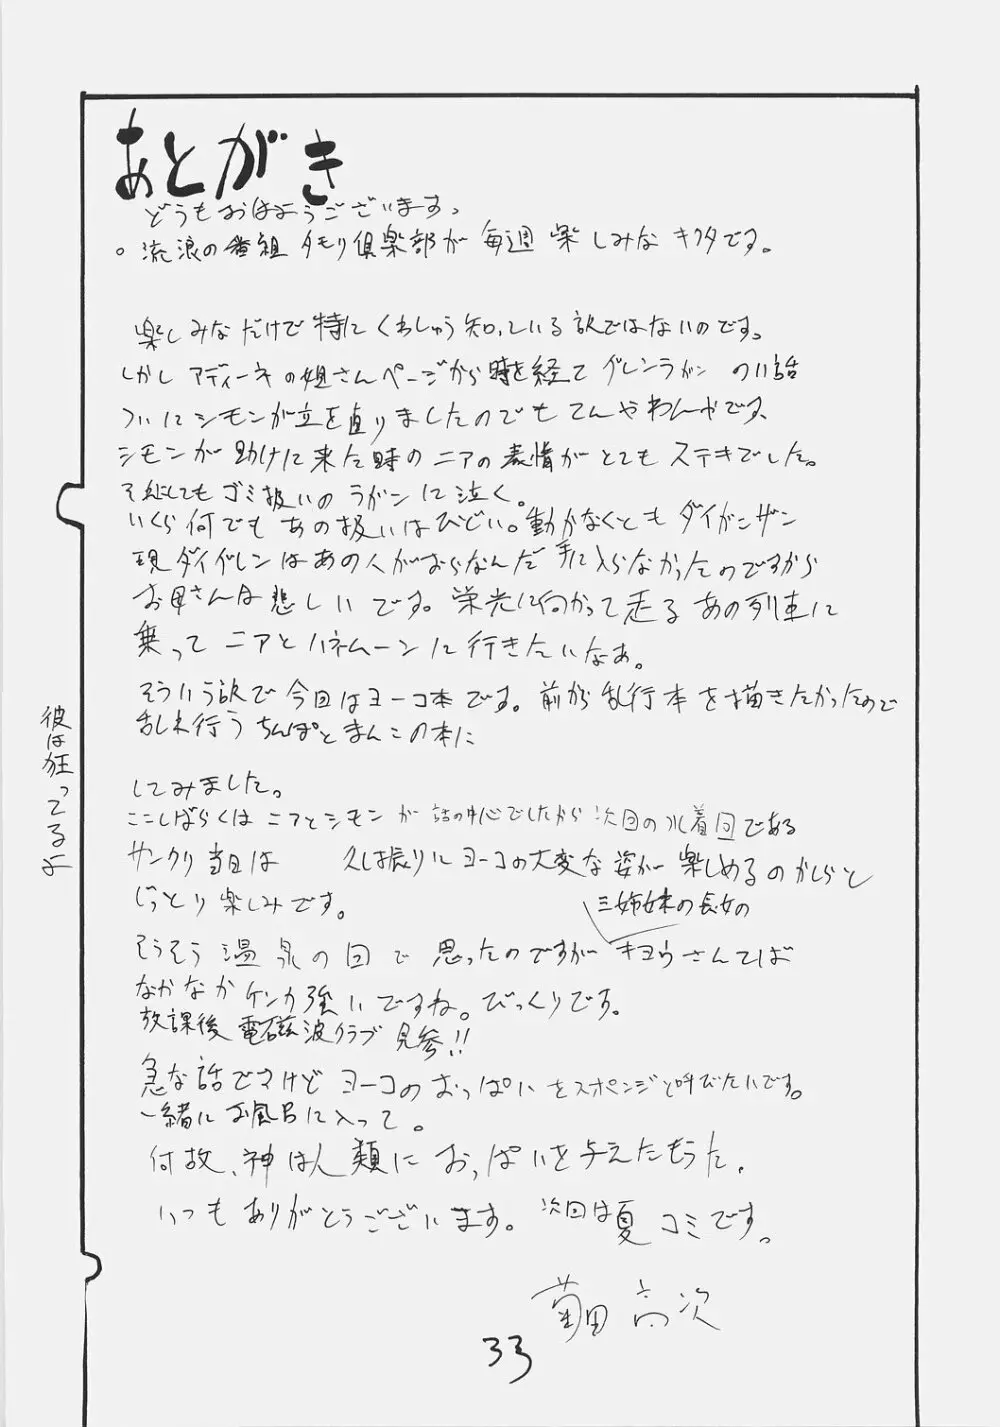 あとがき
どうもおはようございます。
流浪の番組タモリ倶楽部が毎週楽しみなキクタです。
楽しみなだけで特にくわしゅう知っている訳ではないのです。
しかしアディーネの姐さんページから時を経てグレンラガンの11話
ついにシモンが立ち直りましたのでもてんやわんやです、
シモンが助けに来た時のニアの表情がとてもステキでした。
それにしてもゴミ扱いのラガンに泣く。
いくら何でもあの扱いはひどい。動かなくともダイガンザン
現ダイグレンはあの人がおらなんだ手に入らなかったのですから
お母さんは悲しいです。栄光に向かって走るあの列車に
乗ってニアとハネムーンに行きたいなぁ。
そういう訳で今回はヨーコ本です。前から乱行本を描きたかったので
乱れ行うちんぽとまんこの本に
してみました。
ここしばらくはニアとシモンが話の中心でしたから次回の水着回である
サンクリ当日は 久し振りにヨーコの大変な姿が楽しめるのかしらと
じっとり楽しみです。
三姉妹の長女の
そうそう温泉の回で思ったのですがキヨウさんてば
なかなかケンカ強いですね。びっくりです。
放課後電磁波クラブ見参!!
急な話ですけどヨーコのおっぱいをスポンジと呼びたいです。
一緒にお風呂に入って。
何故、神は人類におっぱいを与えたもうた。
いつもありがとうございます。次回は夏コミです。
菊田高次
33
彼は狂ってるよ